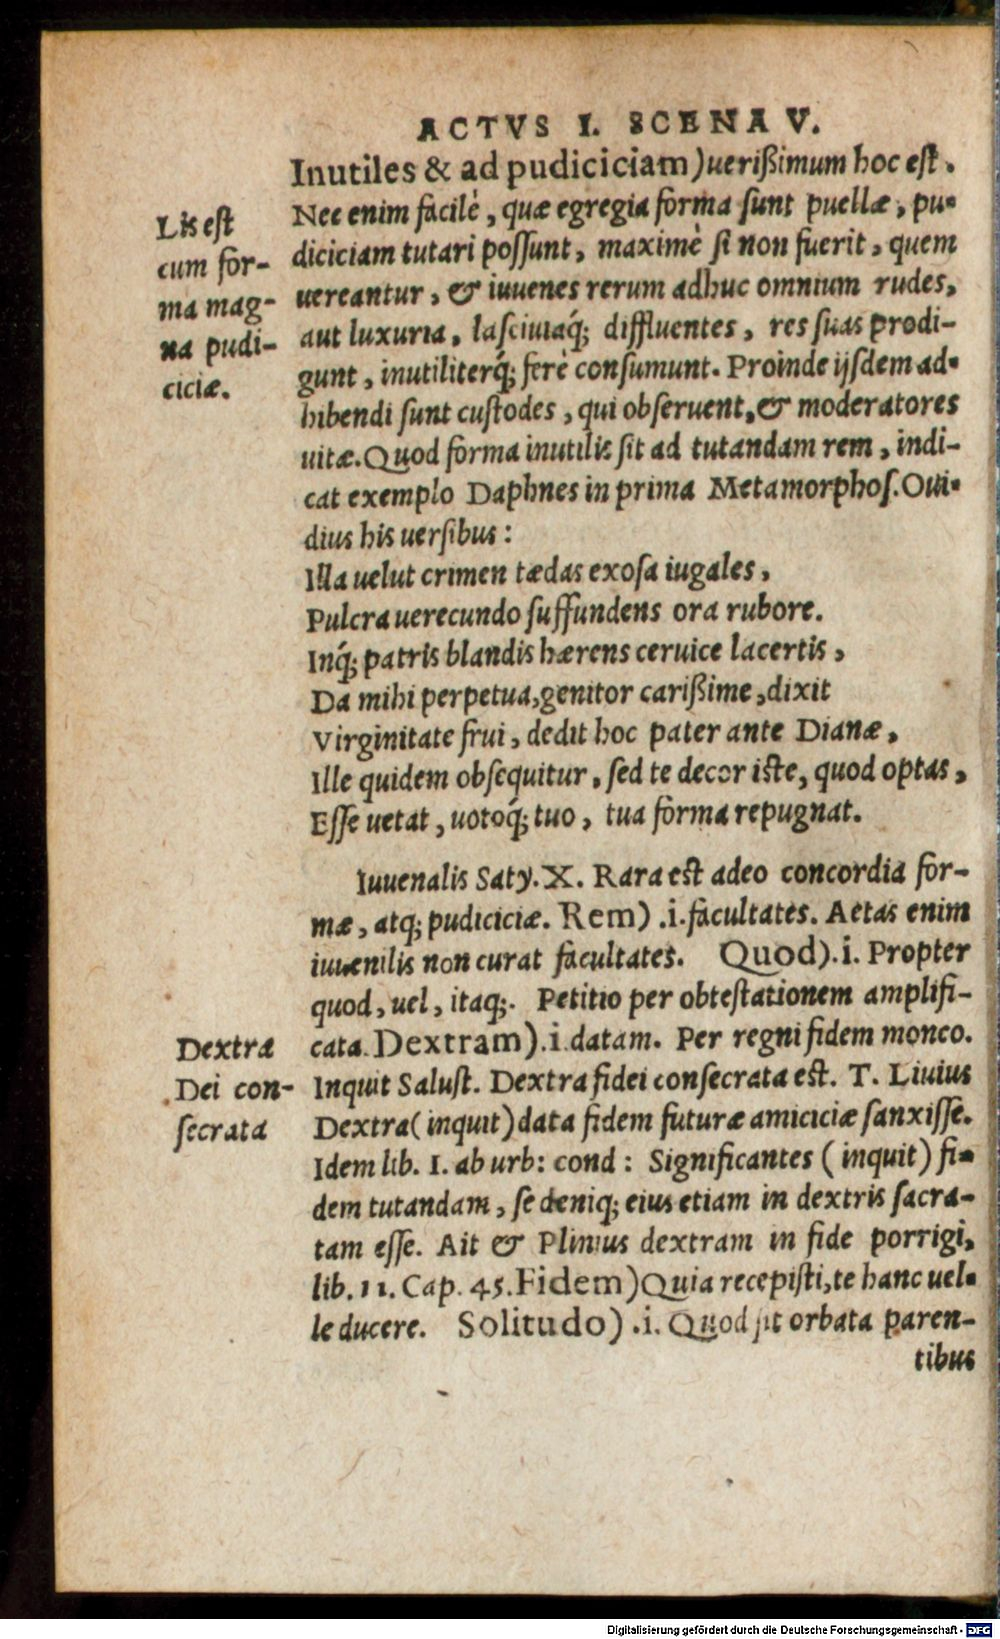 ACTVS I. SCENA V.
Inutiles & ad pudiciciam) uerißimum hoc est.
Nec enim facilè, quæ egregia forma sunt puellæ, pu-
diciciam tutari possunt, maximè si non fuerit, quem
uereantur, & iuuenes rerum adhuc omnium rudes,
aut luxuria, lasciuiaq́; diffluentes, res suas prodi-
gunt, inutiliterq́; ferè consumunt. Proinde ijsdem ad-
hibendi sunt custodes, qui obseruent, & moderatores
uitæ. Quod forma inutilis sit ad tutandam rem, indi-
cat exemplo Daphnes in prima Metamorphos. Oui-
dius his uersibus:
Illa uelut crimen tædas exosa iugales,
Pulcra uerecundo suffundens ora rubore.
Inq́; patris blandis hærens ceruice lacertis,
Da mihi perpetua, genitor carißime, dixit
Virginitate frui, dedit hoc pater ante Dianæ,
Ille quidem obsequitur, sed te decor iste, quod optas,
Esse uetat, uotoq́; tuo, tua forma repugnat.
Iuuenalis Saty. X. Rara est adeo concordia for-
mæ, atq; pudiciciæ. Rem) .i. facultates. Aetas enim
iuuenilis non curat facultates. Quod) .i. Propter
quod, uel, itaq;. Petitio per obtestationem amplifi-
cata. Dextram) .i. datam. Per regni fidem monco.
Inquit Salust. Dextra fidei consecrata est. T. Liuius
Dextra (inquit) data fidem futuræ amiciciæ sanxisse.
Idem lib. I. ab urb: cond: Significantes (inquit) fi-
dem tutandam, sedeniq; eius etiam in dextris sacra-
tam esse. Ait & Plinius dextram in fide porrigi,
lib. 11. Cap. 45. Fidem) Quia recepisti, te hanc uel-
le ducere. Solitudo) .i. Quod sit orbata paren-
tibus
Lis est
cum for-
ma mag-
na pudi-
ciciæ.
Dextræ
Dei con-
secrata
Digitalisierung gefördert durch die Deutsche Forschungsgemeinschaft - DFG